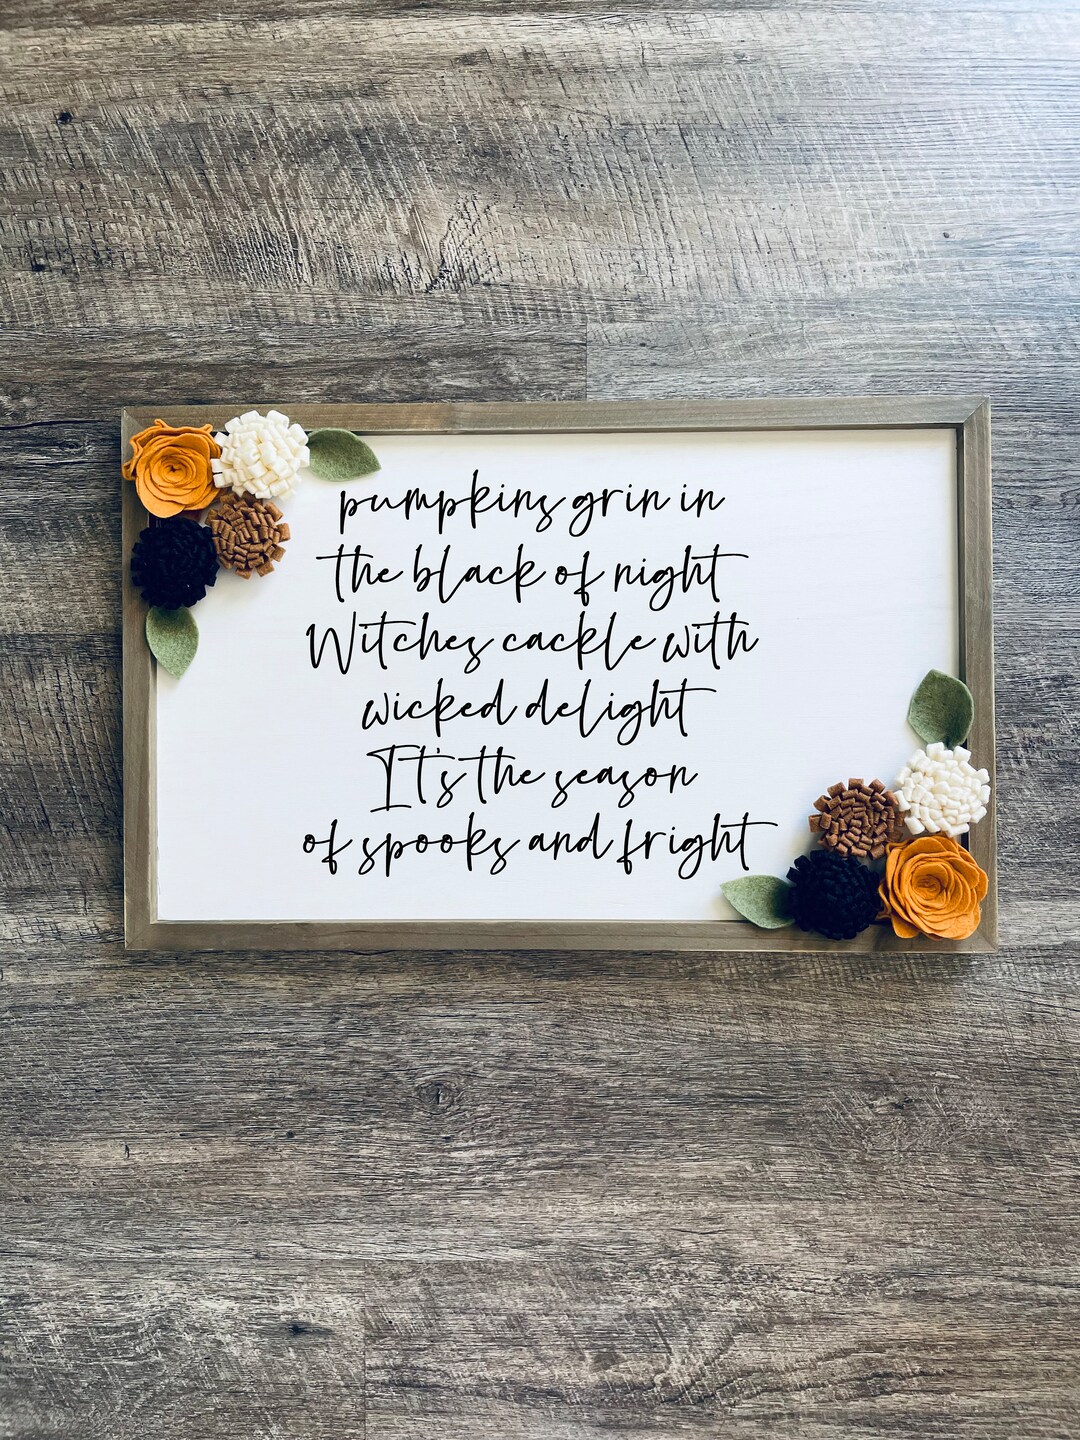 pumpkins grin in
the black of night
Witches cackle with
wicked delight
It's the season
of spooks and fright